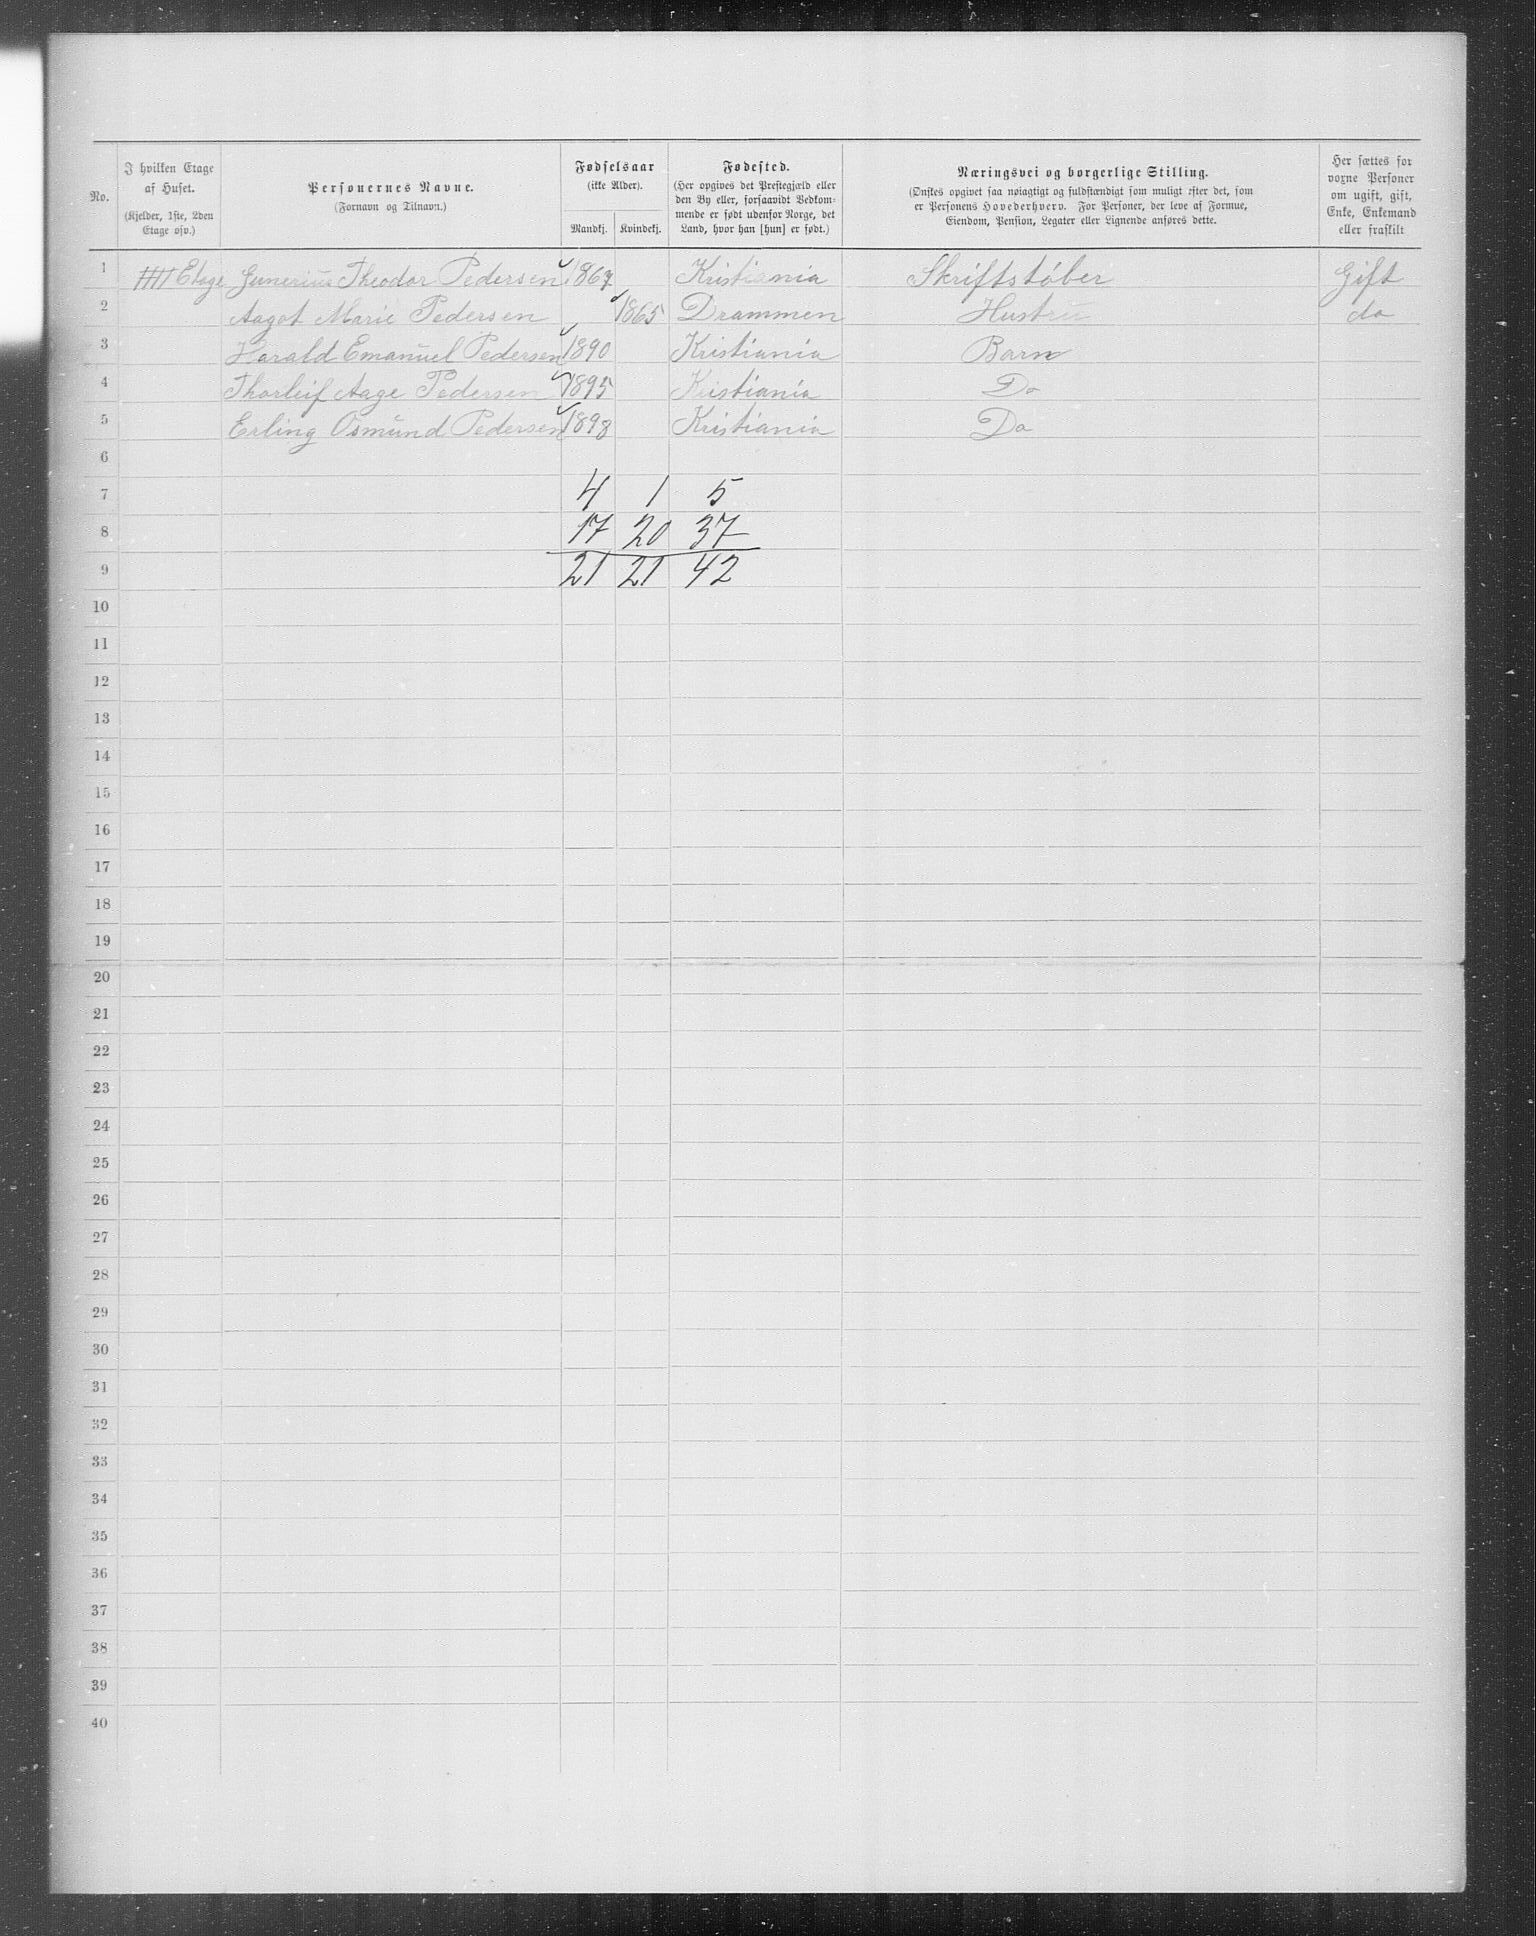 No.
I hvilken Etage af Huset.
(Kjelder, 1ste, 2den Etage osv.)
Personernes Navne.
(Fornavn og Tilnavn.)
Fødselsaar
(ikke Alder).
Mandkj. Kvindekj.
Fødested.
(Her opgives det Prestegjæld eller
den By eller, forsaavidt Vedkom-
mende er født udenfor Norge, det
Land, hvor han [hun] er født.)
Næringsvei og borgerlige Stilling.
(Ønskes opgivet saa nøiagtigt og fuldstændigt som muligt efter det, som
er Personens Hovederhverv. For Personer, der leve af Formue,
Eiendom, Pension, Legater eller Lignende anføres dette.
Her sættes for
voxne Personer
om ugift, gift,
Enke, Enkemand
eller fraskilt
1 IIII Etage Gunerius Theodor Pedersen 1867 Kristiania Skriftstøber Gift
2 Aagot Marie Pedersen 1865 Drammen Hustru do
3 Harald Emanuel Pedersen 1890 Kristiania Barn
4 Thorleif Aage Pedersen 1895 Kristiania Do
5 Erling Osmund Pedersen 1898 Kristiania Do
6
7 4 1 5
8 17 20 37
9 21 21 42
10
11
12
13
14
15
16
17
18
19
20
21
22
23
24
25
26
27
28
29
30
31
32
33
34
35
36
37
38
39
40